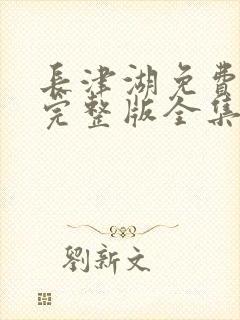 長津湖免費
完整版全集
劉新文